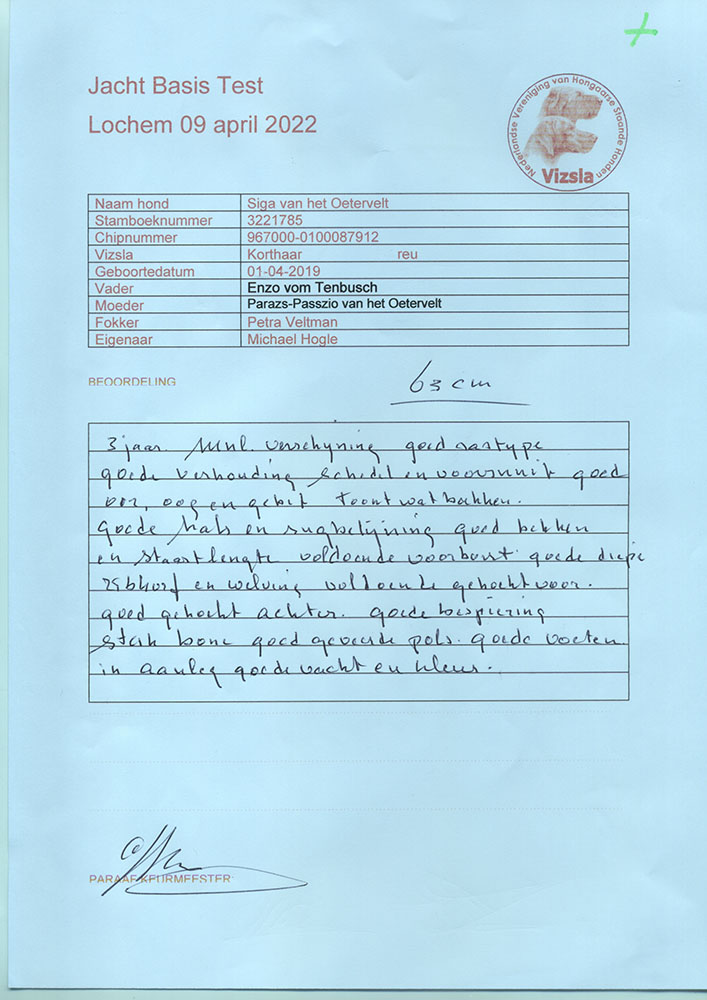 Jacht Basis Test
Lochem 09 april 2022
Nederlandse Vereniging van Hongaarse Staande Honden
Vizsla
Naam hond Siga van het Oetervelt
Stamboeknummer 3221785
Chipnummer 967000-0100087912
Vizsla Korthaar reu
Geboortedatum 01-04-2019
Vader Enzo vom Tenbusch
Moeder Parazs-Passzio van het Oetervelt
Fokker Petra Veltman
Eigenaar Michael Hogle
BEOORDELING 63 cm
3 jaar. Mnl. verschijning goed rastype
goede verhouding schedel en voorsnuit goed
oor, oog en gebit toont wat bakken.
Goede hals en rugbelijning goed bekken
en staartlengte voldoende voorborst goede diepe
ribkorf en welving voldoende gehoekt voor.
goed gehoekt achter. goede bespiering
sterk bone goed geveerde pols. goede voeten
in aanleg goede vacht en kleur.
PARAAF KEURMEESTER